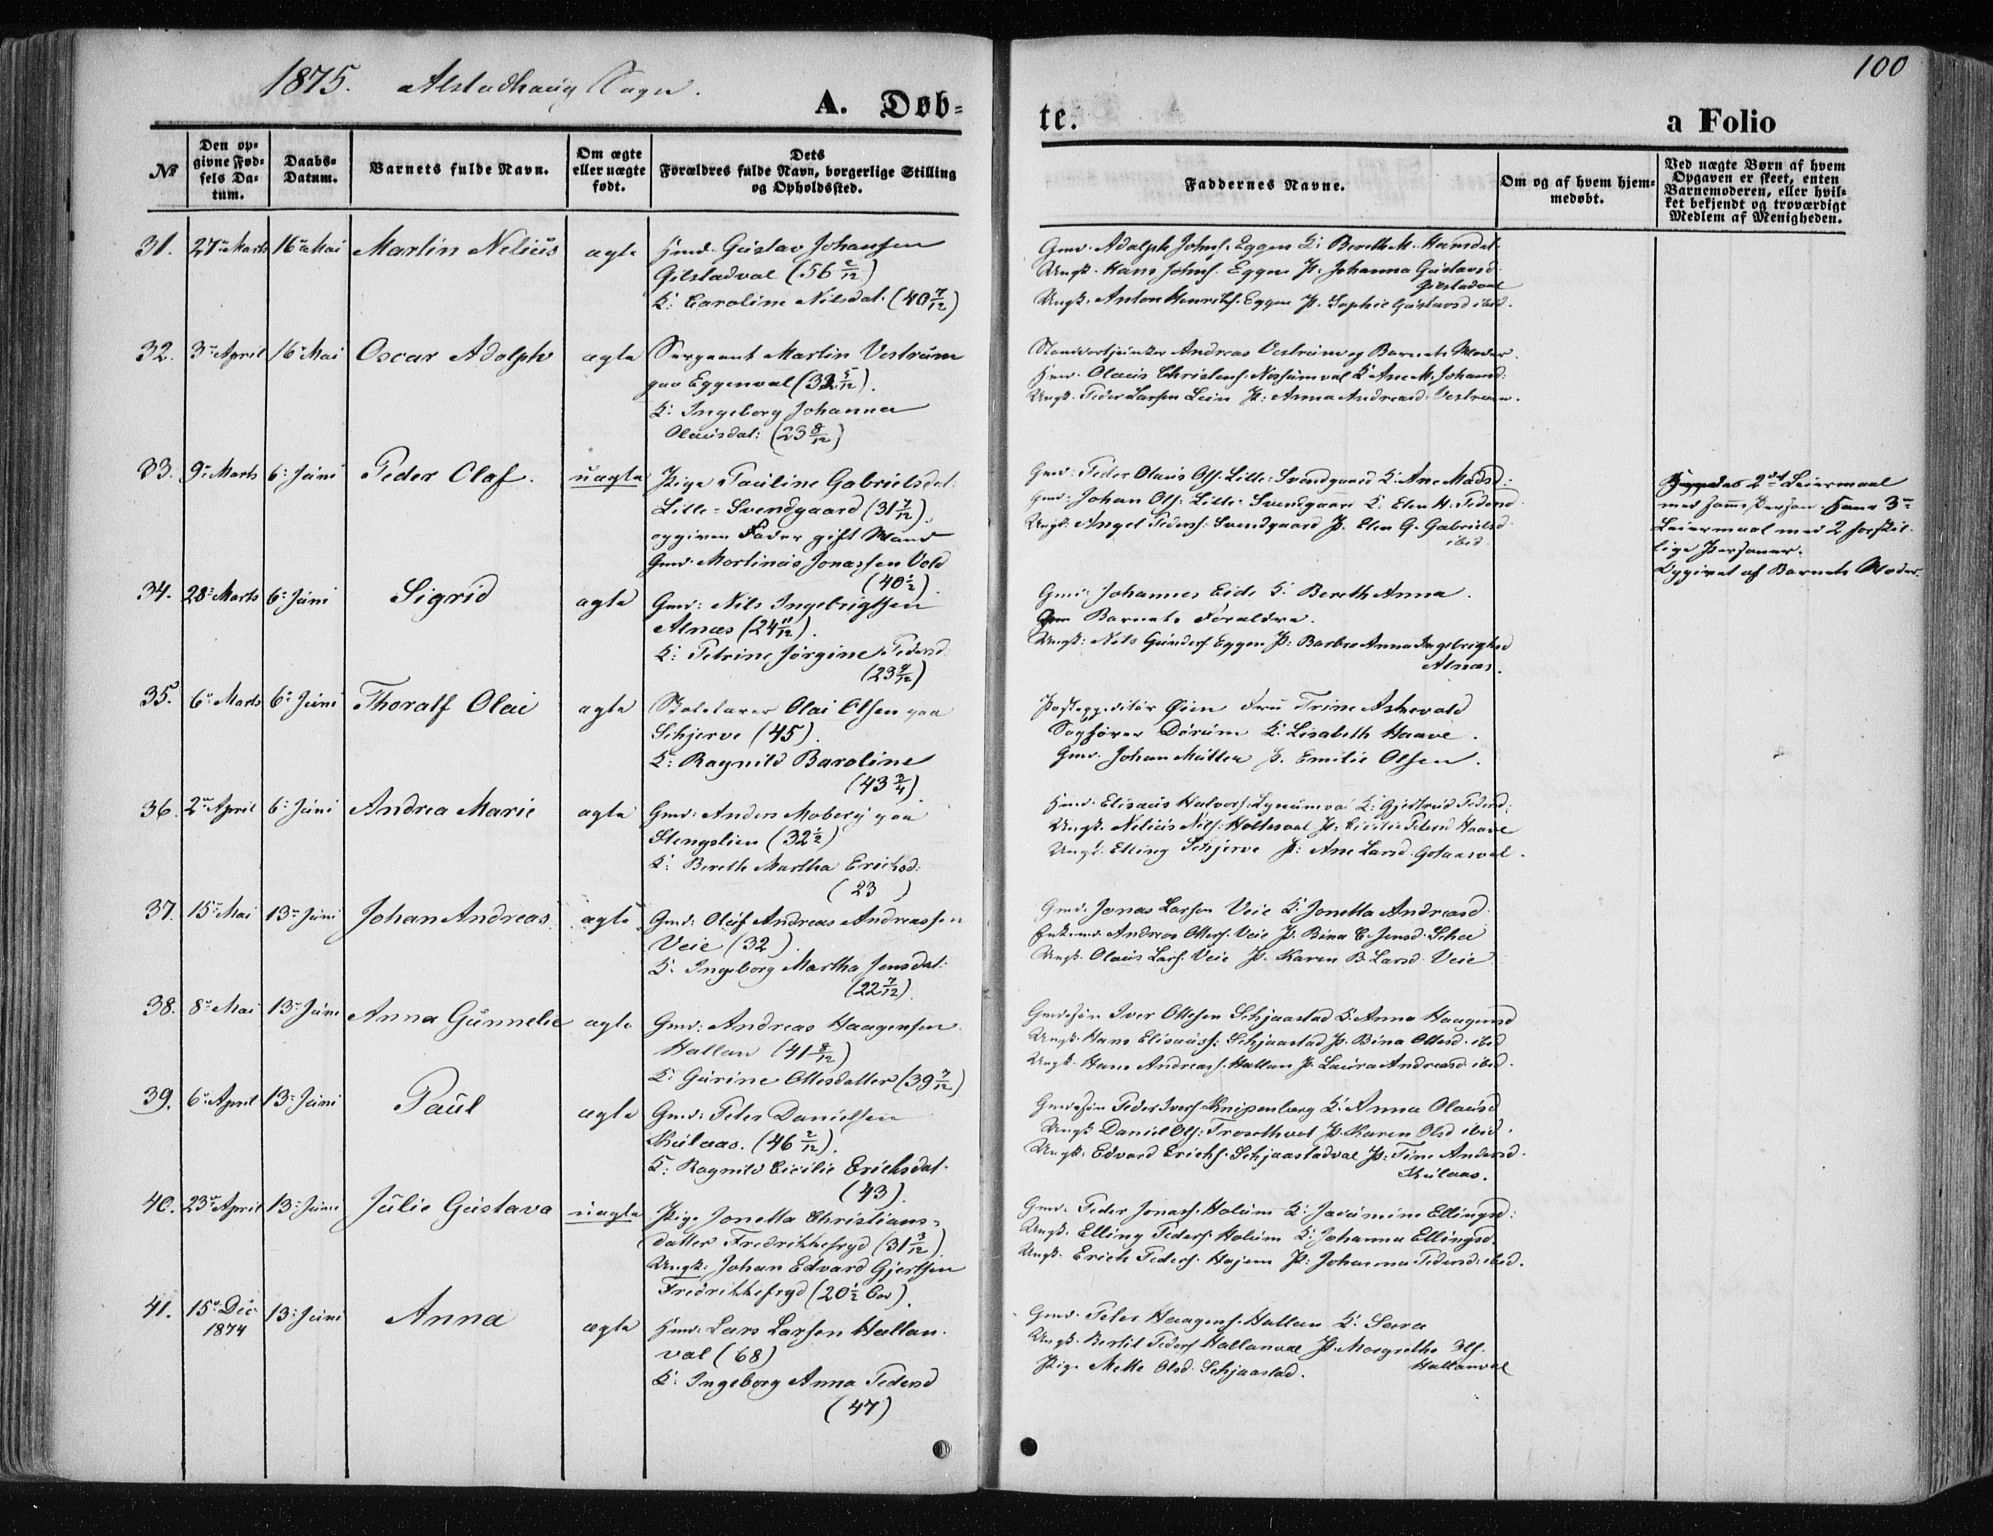 1875. Alstadhaug Sogn.
A. Døb-
te.
a Folio
100
No
Den op-
givne Fød-
sels Da-
tum.
Daabs-
Datum.
Barnets fulde Navn.
Om ægte
eller uægte
født.
Dets
Forældres fulde Navn, borgerlige Stilling
og Opholdssted.
Faddernes Navne.
Om og af hvem hjem-
medøbt.
Ved uægte Børn af hvem
Opgaven er skeet, enten
Barnemoderen, eller hvil-
ket bekjendt og troværdigt
Medlem af Menigheden.
31. 27de Marts 16de Mai Martin Nelius ægte Hmd. Gustav Johansen
Gilstadval (56 2/12)
K: Caroline Nilsdat. (40 7/12)
Gmd. Adolph Johns. Eggen K: Bereth M. Hansdat.
Ungk. Hans Johns. Eggen P. Johanna Gustavsd.
Gilstadval
Ungk. Anton Henriks. Eggen P. Sophie Gustavsd ibid.
32. 3die April 16de Mai Oscar Adolph ægte Sergeant Martin Vestrum
paa Eggenval (32 5/12).
K: Ingeborg Johanna
Olausdat: (23 8/12)
Andreas Vestrum og Barnets Moder.
Hmd. Olaus Christens. Nossumval K: Ane M. Johansd:
Ungk. Peder Larsen Lein P: Anna Andreasd. Vestrum.
33. 9de Marts 6te Juni Peder Olaf. uægte Pige Pauline Gabrielsdat.
Lille-Svendgaard (31 7/12).
opgiven Fader gift Mand
Gmd. Martinus Jonassen Vold
(40 1/2).
Gmd. Peder Olaus Ols. Lille-Svendgaard K: Ane Madsd:
Gmd: Johan Ols. Lille-Svendgaard K. Elen H. Pedersd.
Ungk. Angel Peders. Svendgaard P. Elen G. Gabrielsd
ibid.
2det Leiermaal
med samme Person. Hans 3die
Leiermaal med 2 forskjel-
lige Personer.
Opgivet af Barnets Moder.
34. 28de Marts 6te Juni Sigrid ægte Gmd: Nils Ingebrigtsen
Alnæs (24 11/12).
K: Petrine Jørgine Pedersd
(23 7/12)
Gmd: Johannes Eide K. Bereth Anna.
Barnets Forældre.
Ungk: Nils Gunders Eggen P: Barbro Anna Ingebrigtsd
Alnæs.
35. 6te Marts 6te Juni Thoralf Olai ægte Skolelærer Olai Olsen paa
Schjerve (45).
K: Ragnild Baroline
(43 3/4).
Postexpeditør Øien Fru Trine Ashevold
Sagfører Dørum K: Lisabeth Haave.
Gmd. Johan Müller P. Emilie Olsen.
36. 2den April 6te Juni Andrea Marie ægte Gmd: Anders Moberg paa
Stengslien (32 1/2)
K: Bereth Martha Erichsd:
(23 )
Hmd. Elisæus Halvors: Lynumval K: Gjertrud Pedersd:
Ungk. Nelius Nils: Holtesval P: Cicilie Petersd Haave
Ungk. Elling Schjerve P: Ane Larsd.
37. 15de Mai 13de Juni Johan Andreas ægte Gmd: Oluf Andreas Andreassen
Veie (32).
K. Ingeborg Martha Jonsdat.
(22 7/12).
Gmd. Jonas Larsen Veie K: Jonetta Andreasd
Enkemd. Andreas Otters. Veie P. Bina E. Jensd.
Ungk. Olaus Lars. Veie P. Karen B. Larsd Veie
38. 8de Mai 13de Juni Anna Gunnelie ægte Gmd: Andreas Haagensen
Hallan (41 8/12)
K: Gurine Ottesdatter (39 7/12)
Gmdsøn Iver Ottesen Schjaastad K. Anna Haagensd
Ungk. Hans Elisæuss. Schjaastad P. Bina Ottesd. ibid
Ungk. Hans Andreass. Hallan P. Laura Andreasd ibid.
39. 6te April 13de Juni Paul ægte Gmd: Peter Danielsen
Skulaas. (46 2/12).
K: Ragnild Cicilie Erichsdat.
(43).
Gmdsøn Peder Ivers. Knipenberg K. Anna Olausd
Ungk Daniel Ols: Frosethval P. Karen Olsd ibid.
Ungk. Edvard Erichs: Schjaastadval P: Tine Andersd.
Skulaas.
40. 23de April 13de Juni Julie Gustava uægte Pige Jonetta Christians-
datter Fredrikkefryd (31 3/12).
Ungk: Johan Edvard Gjertsen
Fredrikkefryd (20 1/2).
Gmd. Peder Jonass. Holum K: Jacomine Ellingsd:
Ungk. Elling Peders. Holum K: Johanna Ellingsd.
Ungk. Erich Peders. Hojem P: Johanna Pedersd. ibid.
41. 15de Dec 13de Juni Anna ægte Hmd. Lars Larsen Hallan-
1874
val (68)
K: Ingeborg Anna Pedersd
(47)
Gmd. Peter Haagens. Hallan K: Sara
Ungk. Bertil Peders Hallanval P. Margrethe
Hallanval
Pige Mette Olsd. Schjaastad.